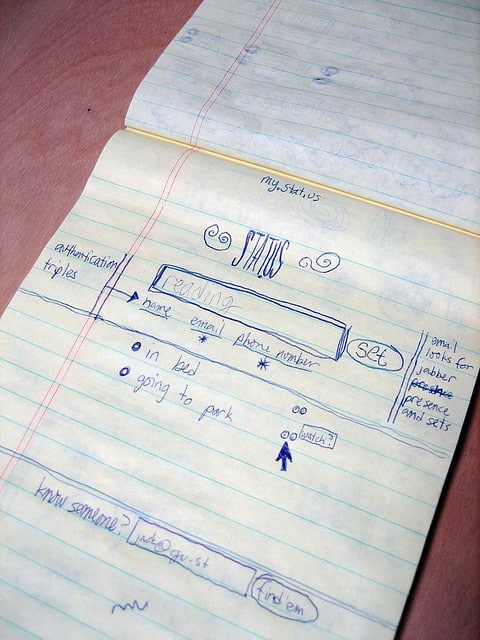 my.stat.us
STATUS
authentication
triples
reading
name email phone number
set
in bed
going to park
watch?
email
looks for
jabber
presence
presence
and sets
know someone?
jack@gu.st
find'em